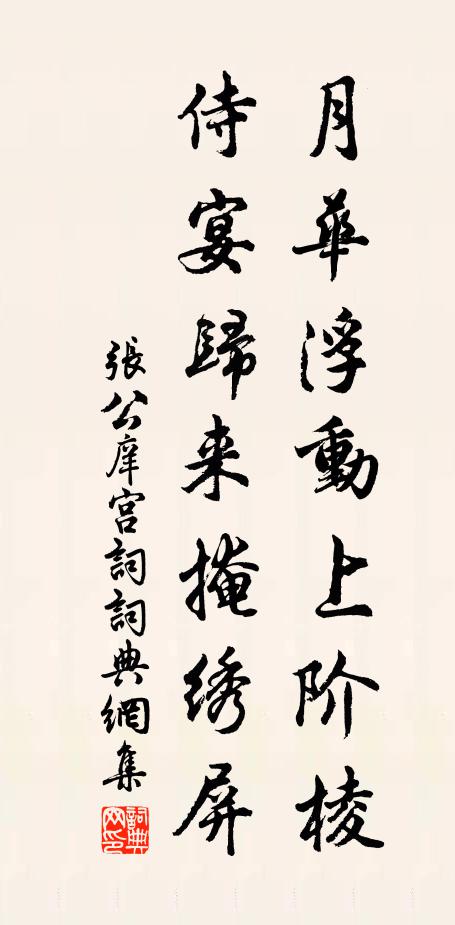 月華浮動上阶棱
侍宴歸来掩绣屏
張公庠宫詞詞典網集
詞典网印